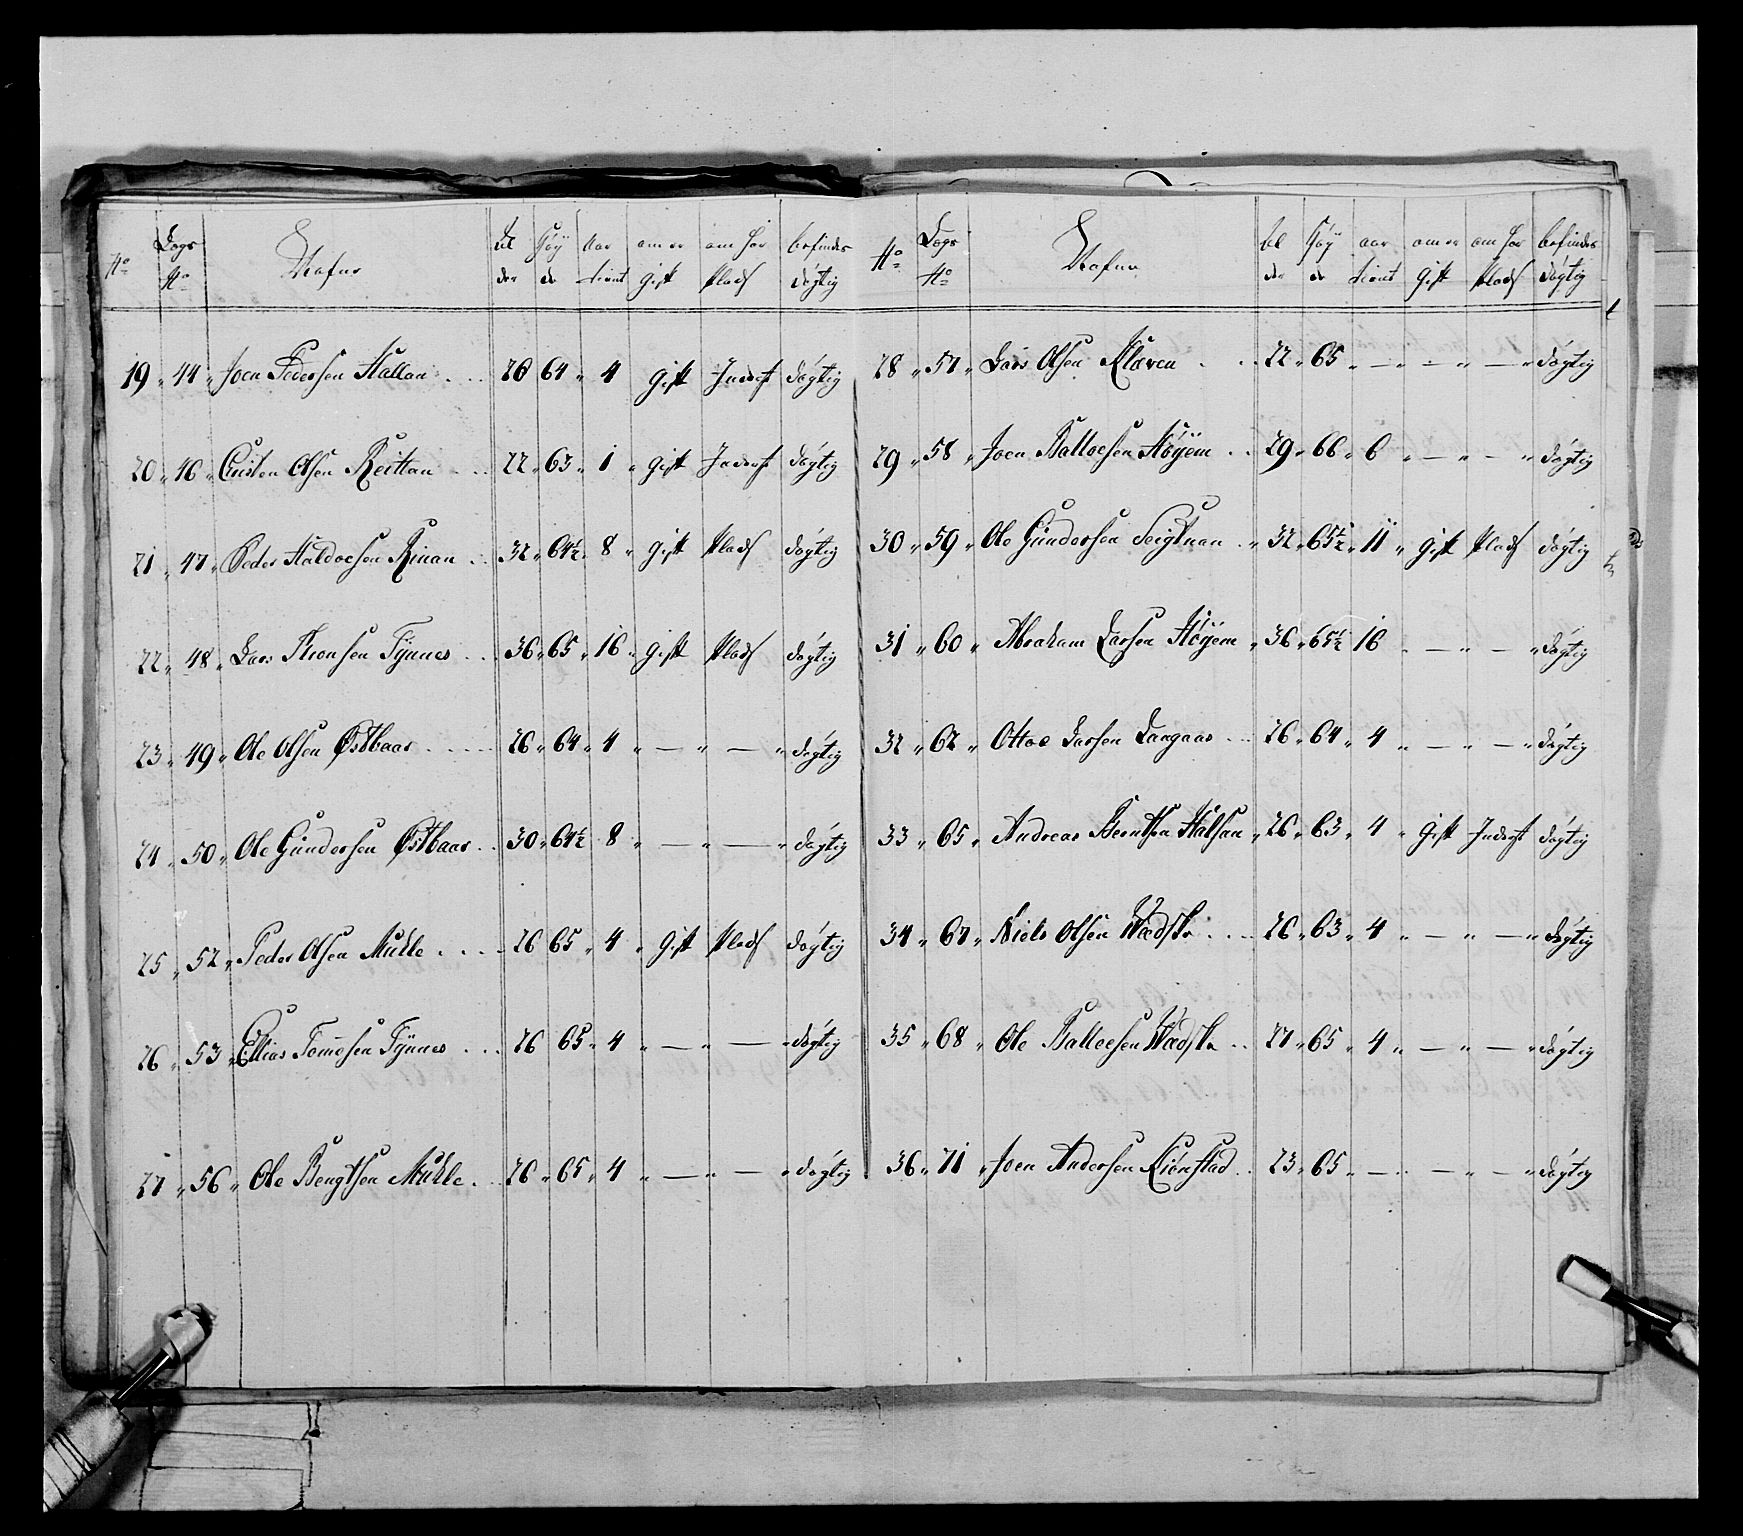 No Lægs No Nafne Al der Høy de Aar tient om er gift om har Plads befindes døgtig
19 " 44 " Joen Pedersen Hallan 26 64 " 4 gift Inderst døgtig
20 " 46 " Cristen Olsen Reittan 22 " 63 " 1 " gift Inderst døgtig
21 " 47 " Peder Haldoesen Rinan 32 " 64½ " 8 " gift Plads døgtig
22 " 48 " Lars Thronsen Tynnes 36 " 65 " 16 " gift Plads døgtig
23 " 49 " Ole Olsen Østbaar 26 " 64 " 4 " — " — " døgtig
24 " 50 " Ole Gundersen Østbaar 30 " 64½ 8 " — " — " døgtig
25 " 52 " Peder Olsen Mickle 26 65 " 4 " gift Plads døgtig
26 " 53 " Ellias Tomesen Tynnes 26 65 " 4 " — " — " døgtig
27 " 56 " Ole Bengtsen Mickle 26 " 65 " 4 " — " — " døgtig
No Lægs No Nafne al der Høy de aar tient om er gift om har Plads befindes døgtig
28 " 57 " Lars Olsen Kløven 22 " 65 " — " — " — " døgtig
29 " 58 " Joen Balloesen Høyem 29 " 66 " 6 " — " — " døgtig
30 " 59 " Ole Gundersen 32 " 65½ " 11 " gift Plads døgtig
31 " 60 " Abraham Larsen Høyem " 36 " 65½ 16 " — " — " døgtig
32 " 62 " Ottoe Larsen Langaas 26 " 64 " 4 " — " — " døgtig
33 " 65 " Andreas Berntsen Halsan " 26 " 63 " 4 " gift Inderst døgtig
34 " 67 " Niels Olsen 26 " 63 " 4 " — " — " døgtig
35 " 68 " Ole Balloesen 27 " 65 " 4 " — " — " døgtig
36 " 71 " Joen Andersen Kiønstad 23 " 65 " — " — " — " døgtig